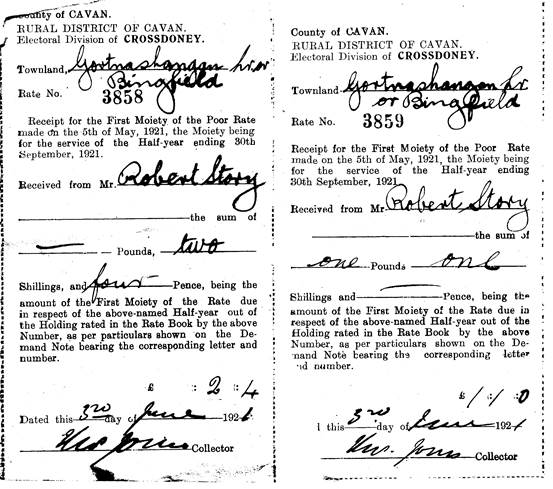 County of CAVAN.
RURAL DISTRICT OF CAVAN.
Electoral Division of CROSSDONEY.
Townland, Gortnashangan Lr. or
Bingfield
Rate No. 3858
Receipt for the First Moiety of the Poor Rate
made on the 5th of May, 1921, the Moiety being
for the service of the Half-year ending 30th
September, 1921.
Received from Mr. Robert Story
the sum of
— Pounds, two
Shillings, and four Pence, being the
amount of the First Moiety of the Rate due
in respect of the above-named Half-year out of
the Holding rated in the Rate Book by the above
Number, as per particulars shown on the De-
mand Note bearing the corresponding letter and
number.
£ : 2 : 4
Dated this 3rd day of June 1921
Thos. Jones Collector
County of CAVAN.
RURAL DISTRICT OF CAVAN.
Electoral Division of CROSSDONEY.
Townland Gortnashangan Lr
or Bingfield
Rate No. 3859
Receipt for the First Moiety of the Poor Rate
made on the 5th of May, 1921, the Moiety being
for the service of the Half-year ending
30th September, 1921.
Received from Mr. Robert Story
the sum of
one Pounds one
Shillings and — Pence, being the
amount of the First Moiety of the Rate due in
respect of the above-named Half-year out of the
Holding rated in the Rate Book by the above
Number, as per particulars shown on the De-
mand Note bearing the corresponding letter
nd number.
£ 1 / 1 / 0
this 3rd day of June 1921
Thos. Jones Collector